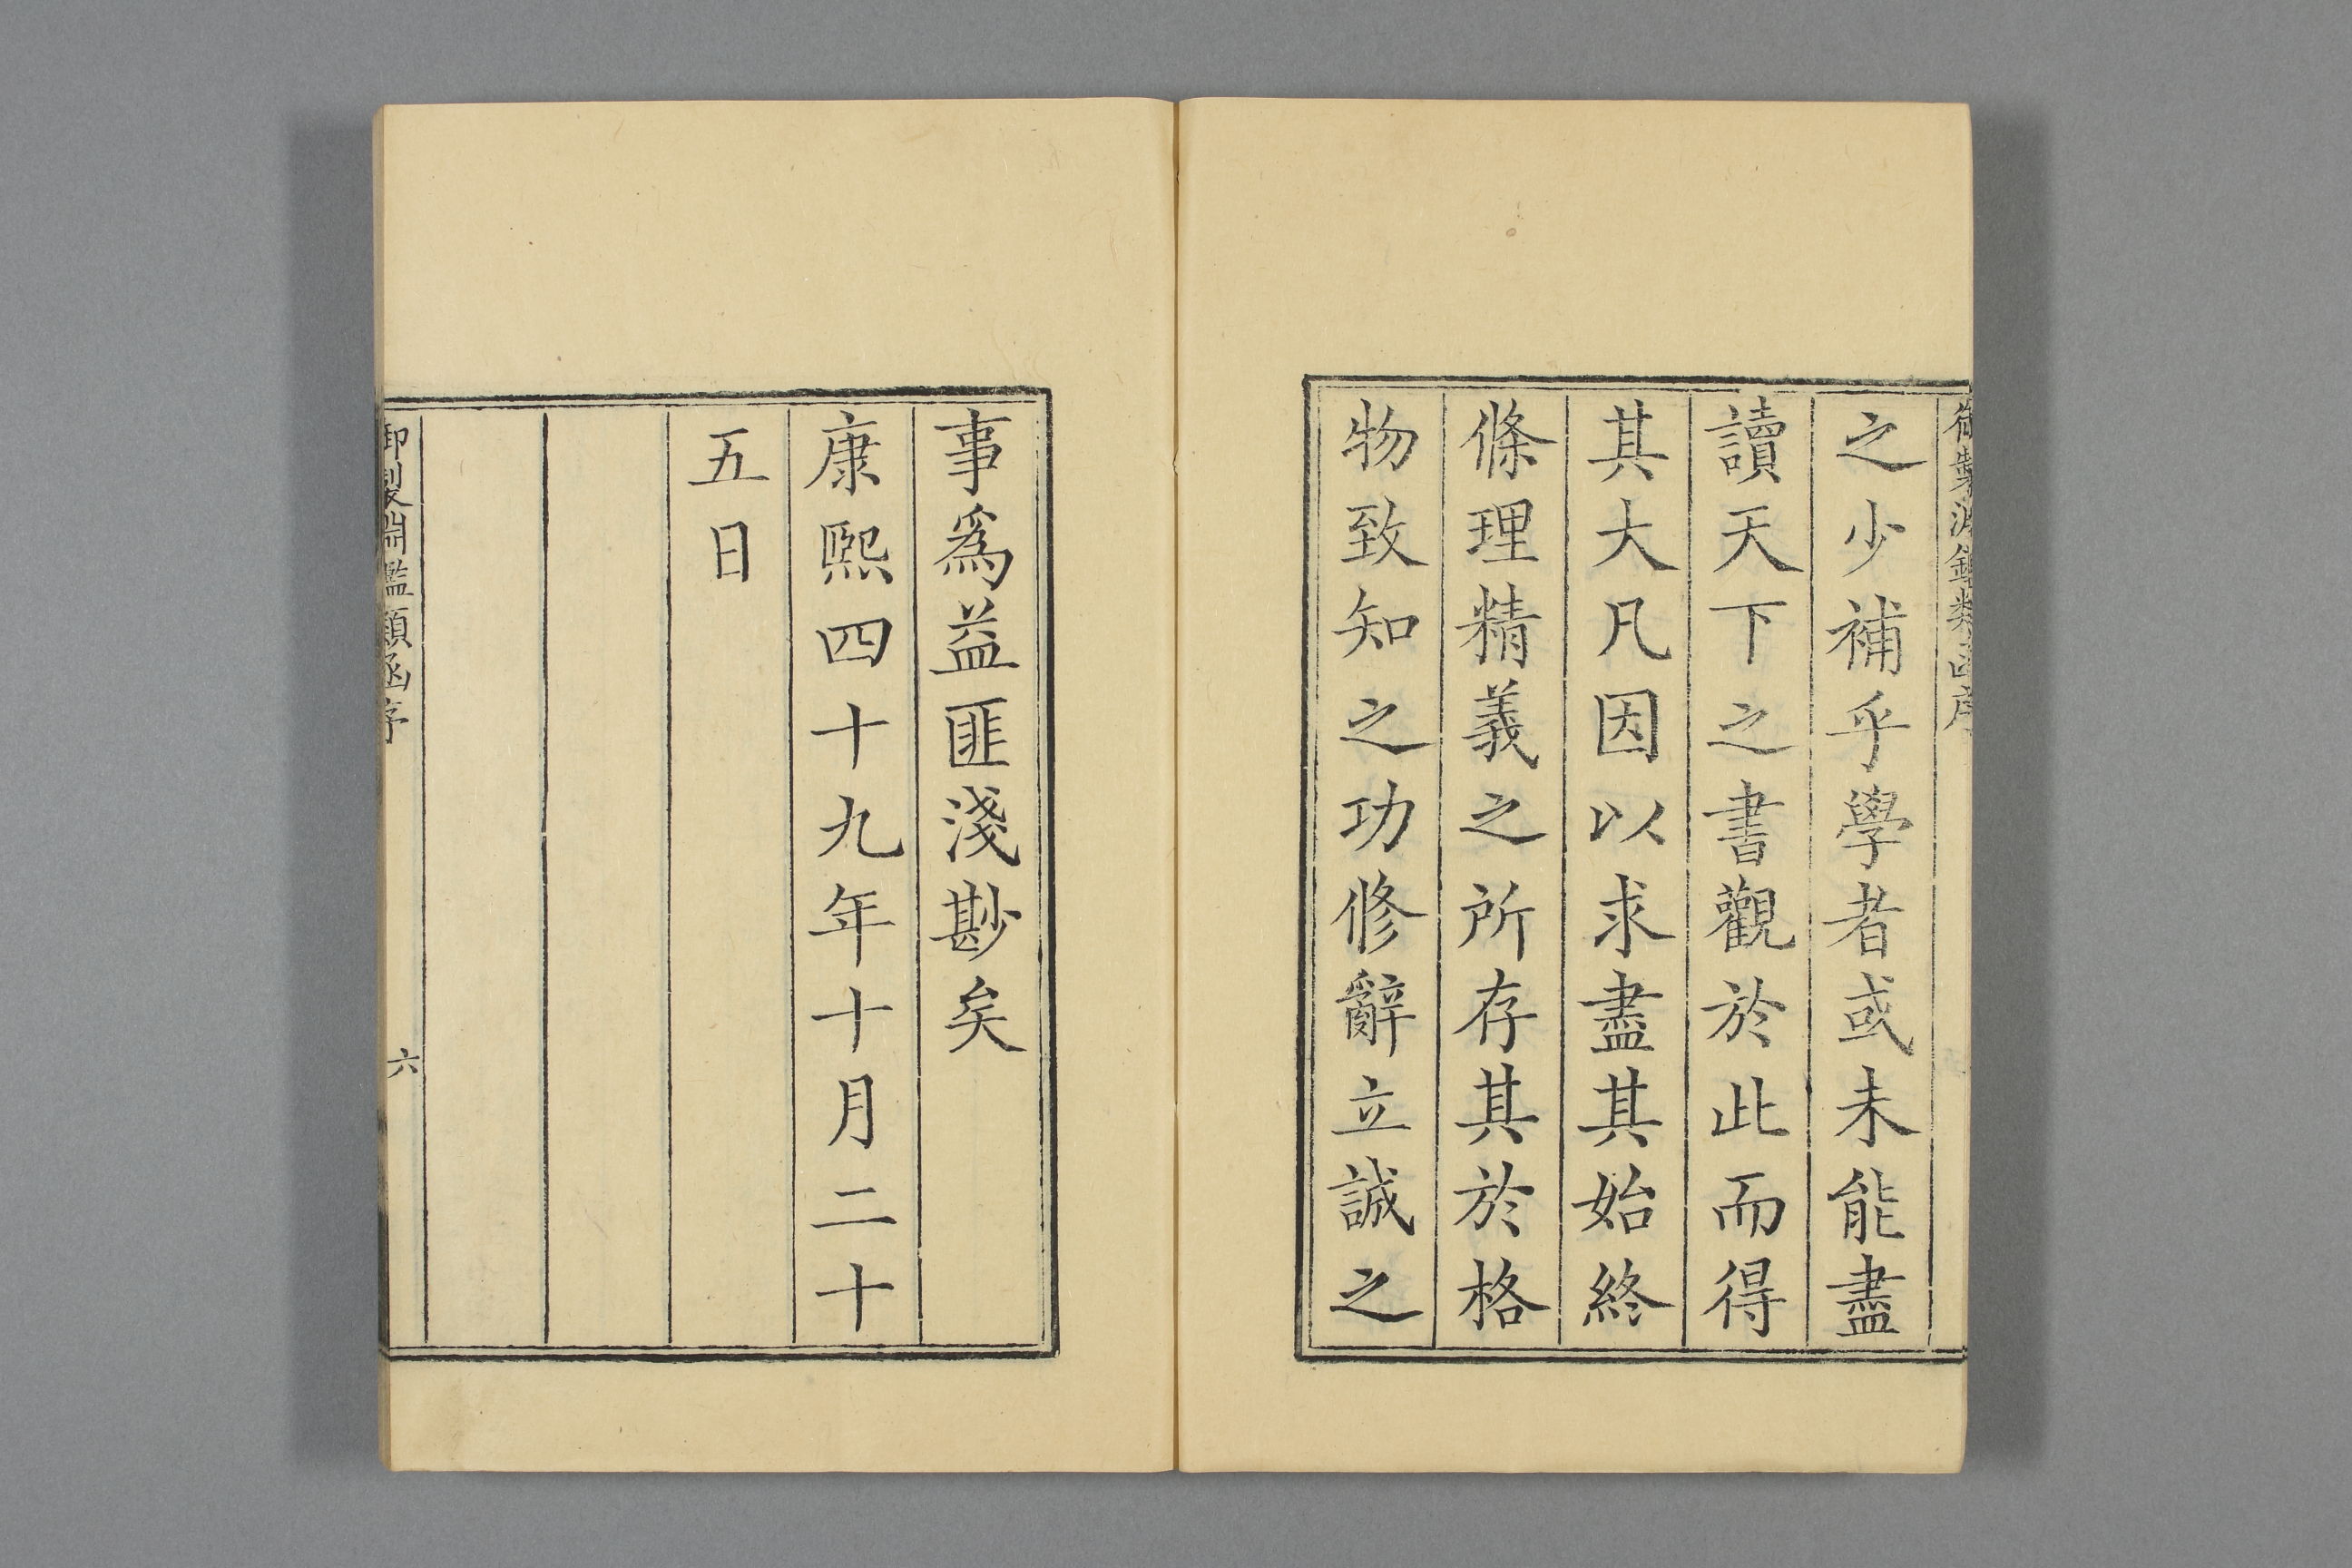 御製淵鑑類函序
之少補乎學者或未能盡
讀天下之書觀於此而得
其大凡因以求盡其始終
條理精義之所存其於格
物致知之功修辭立誠之
事爲益匪淺尠矣
康熙四十九年十月二十
五日
御製淵鑑類函序
六